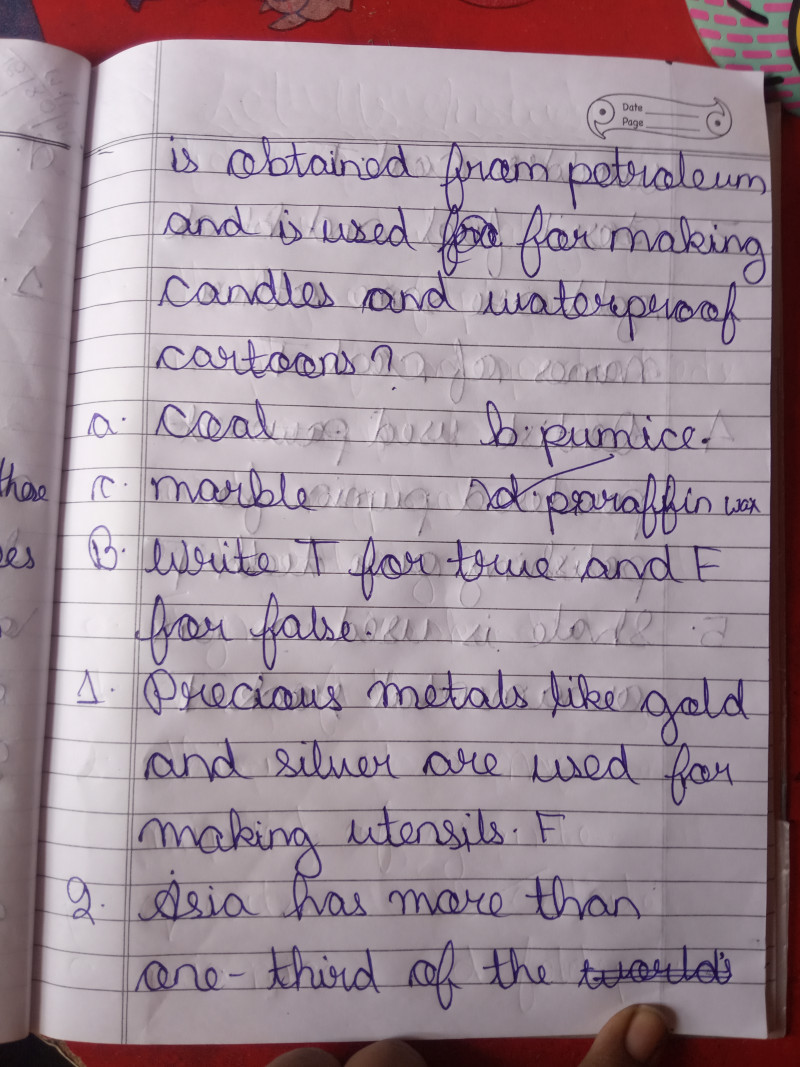 Date
Page
is obtained from petroleum
and is used for making
candles and waterproof
cartoons?
a. Coal b. pumice.
c. marble d. paraffin wax
B. Write T for true and F
for false.
1. Precious metals like gold
and silver are used for
making utensils. F
2. Asia has more than
one-third of the world's
those
es